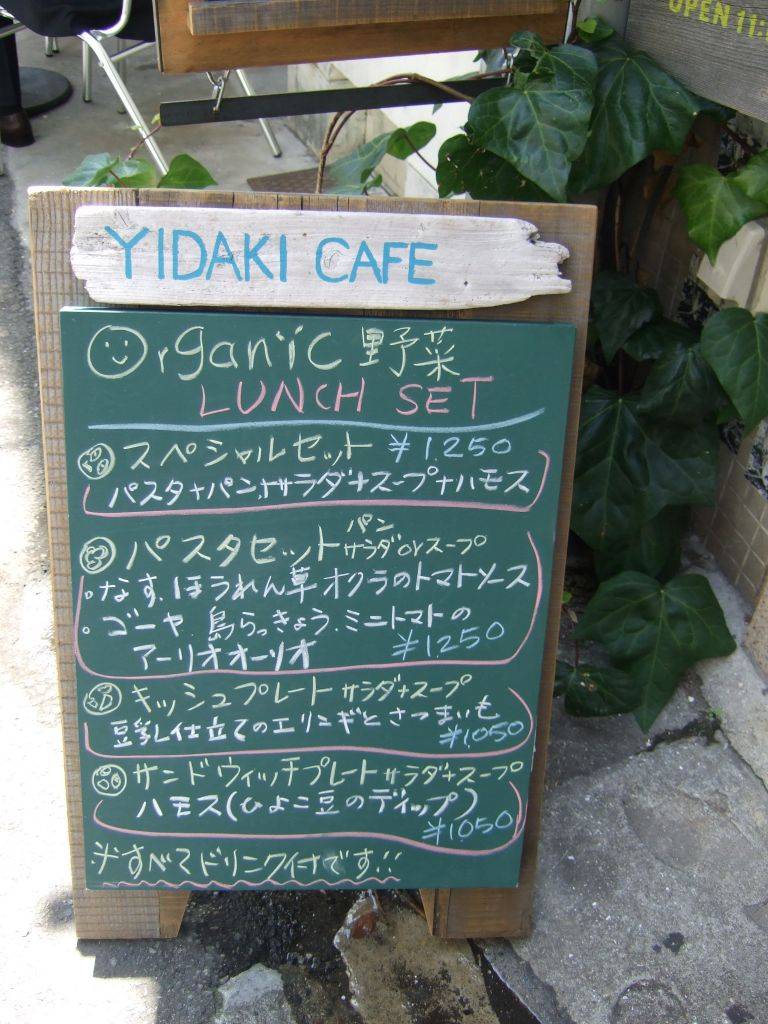 OPEN 11:
YIDAKI CAFE
Organic 野菜
LUNCH SET
スペシャルセット ¥1.250
パスタ+パン+サラダ+スープ+ハモス
パスタセット パン サラダorスープ
・なす.ほうれん草 オクラのトマトソース
・ゴーヤ.島らっきょう.ミニトマトの
アーリオオーリオ ¥1.250
キッシュプレート サラダ+スープ
豆乳仕立てのエリンギとさつまいも
¥1,050
サンドウィッチプレート サラダ+スープ
ハモス(ひよこ豆のディップ)
¥1,050
※すべてドリンク付です!!